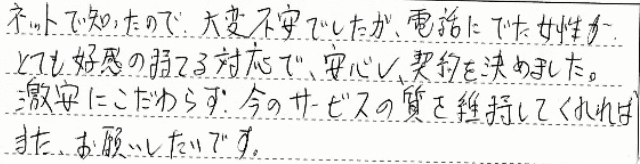 ネットで知ったので、大変不安でしたが、電話にでた女性が
とても好感の持てる対応で、安心し、契約を決めました。
激安にこだわらず、今のサービスの質を維持してくれれば
また、お願いしたいです。